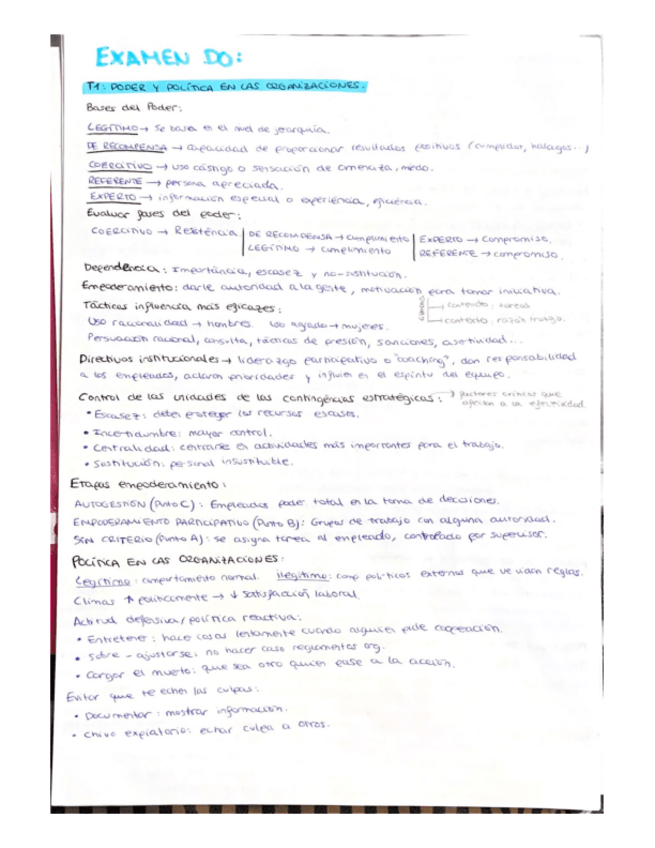 EXAMEN DO:
T1: PODER Y POLÍTICA EN LAS ORGANIZACIONES.
Bases del Poder:
LEGÍTIMO → Se basa en el nivel de jerarquía.
DE RECOMPENSA → capacidad de proporcionar resultados positivos (cumplidos, halagos...)
COERCITIVO → uso castigo o sensación de amenaza, miedo.
REFERENTE → persona apreciada.
EXPERTO → información especial o experiencia, eficiencia.
Evaluar bases del poder:
COERCITIVO → Resistencia | DE RECOMPENSA → cumplimiento | EXPERTO → compromiso.
LEGÍTIMO → cumplimiento | REFERENTE → compromiso.
Dependencia: Importancia, escasez y no-sustitución.
Empoderamiento: darle autoridad a la gente, motivación para tomar iniciativa.
Tácticas influencia más eficaces:
contenido: tareas
contexto: razón trabajo.
Uso racionalidad → hombres. uso agrado → mujeres.
Persuación racional, consulta, tácticas de presión, sanciones, asertividad...
Directivos institucionales → liderazgo participativo o "coaching", dan responsabilidad
a los empleados, aclaran prioridades y influien en el espíritu del equipo.
Control de las unidades de las contingencias estratégicas: factores críticos que
afectan a la efectividad
• Escasez: deben proteger los recursos escasos.
• Incertidumbre: mayor control.
• Centralidad: centrarse en actividades más importantes para el trabajo.
• Sustitución: personal insustituible.
Etapas empoderamiento:
AUTOGESTIÓN (Punto C): Empleados poder total en la toma de decisiones.
EMPODERAMIENTO PARTICIPATIVO (Punto B): Grupos de trabajo con alguna autoridad.
SIN CRITERIO (Punto A): se asigna tarea al empleado, controlado por supervisor.
POLÍTICA EN LAS ORGANIZACIONES:
Legítimo: comportamiento normal. Ilegítimo: comp políticos extremos que violan reglas.
Climas ↑ políticamente → ↓ satisfacción laboral.
Actitud defensiva/política reactiva:
• Entretener: hace cosas lentamente cuando alguien pide cooperación.
• Sobre-ajustarse: no hacer caso reglamentos org.
• Cargar el muerto: que sea otro quien pase a la acción.
Evitar que te echen las culpas:
• Documentar: mostrar información.
• Chivo expiatorio: echar culpa a otros.